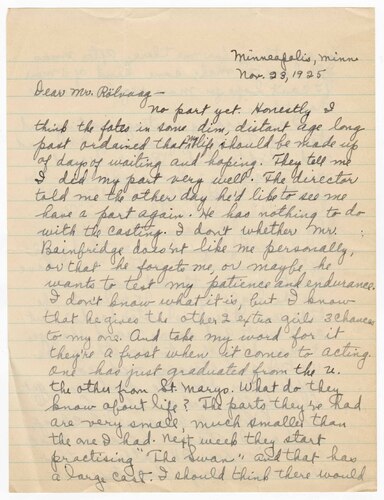 Minneapolis, Minn
Nov. 23, 1925
Dear Mr. Rölvaag—
No part yet. Honestly I
think the fates in some dim, distant age long
past ordained that my life should be made up
of days of waiting and hoping. They tell me
I did my part very well. The director
told me the other day he'd like to see me
have a part again. He has nothing to do
with the casting. I don't whether Mr.
Bainbridge doesn't like me personally,
or that he forgets me, or maybe, he
wants to test my patience and endurance.
I don't know what it is, but I know
that he gives the other 2 extra girls 3 chances
to my one. And take my word for it
they're a frost when it comes to acting.
One has just graduated from the U.
the other from St. Marys. What do they
know about life? The parts they've had
are very small, much smaller than
the one I had. Next week they start
practising "The Swan" and that has
a large cast. I should think there would